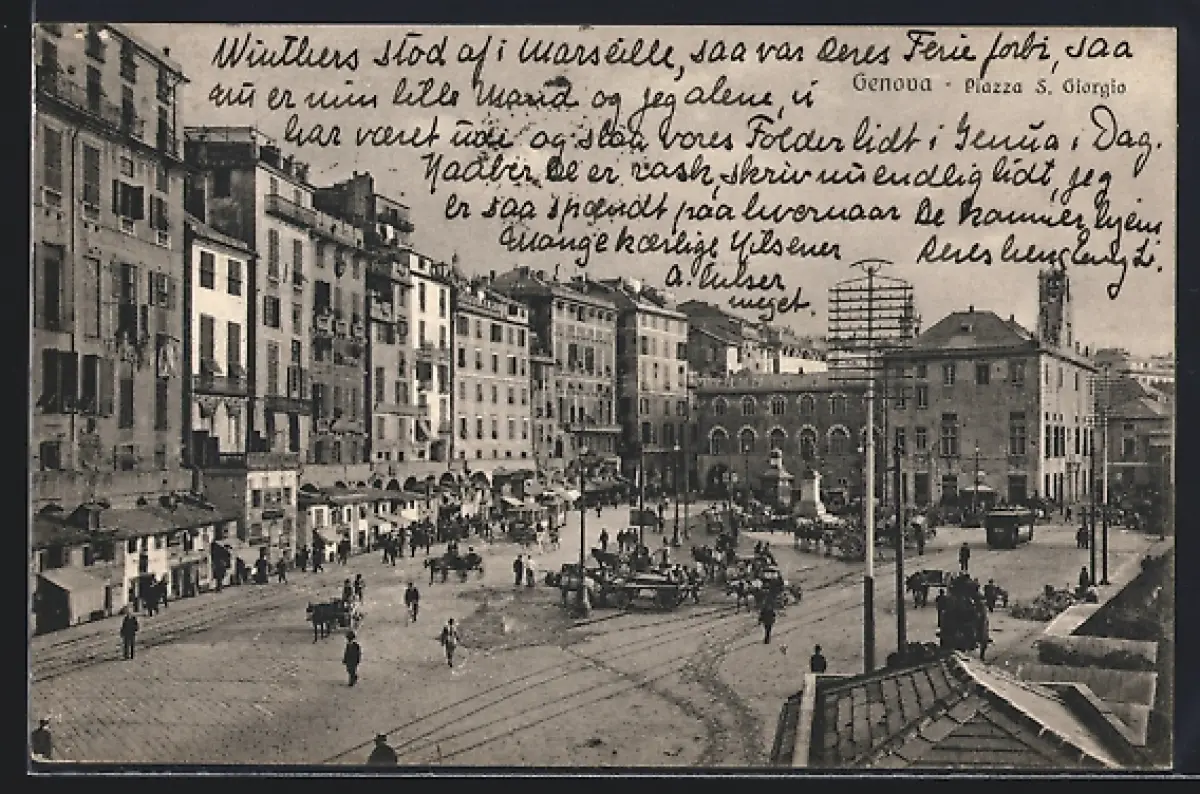 Winthers stod af i Marseille, saa var deres Ferie forbi, saa
Genova - Piazza S. Giorgio
nu er min lille Mand og jeg alene, vi
har været ude og slaa vores Folder lidt i Genua i Dag.
Haaber De er rask, skriv nu endelig lidt, jeg
er saa spændt paa hvornaar De kommer hjem
Mange kærlige Hilsener
Deres hengivne
A.
meget